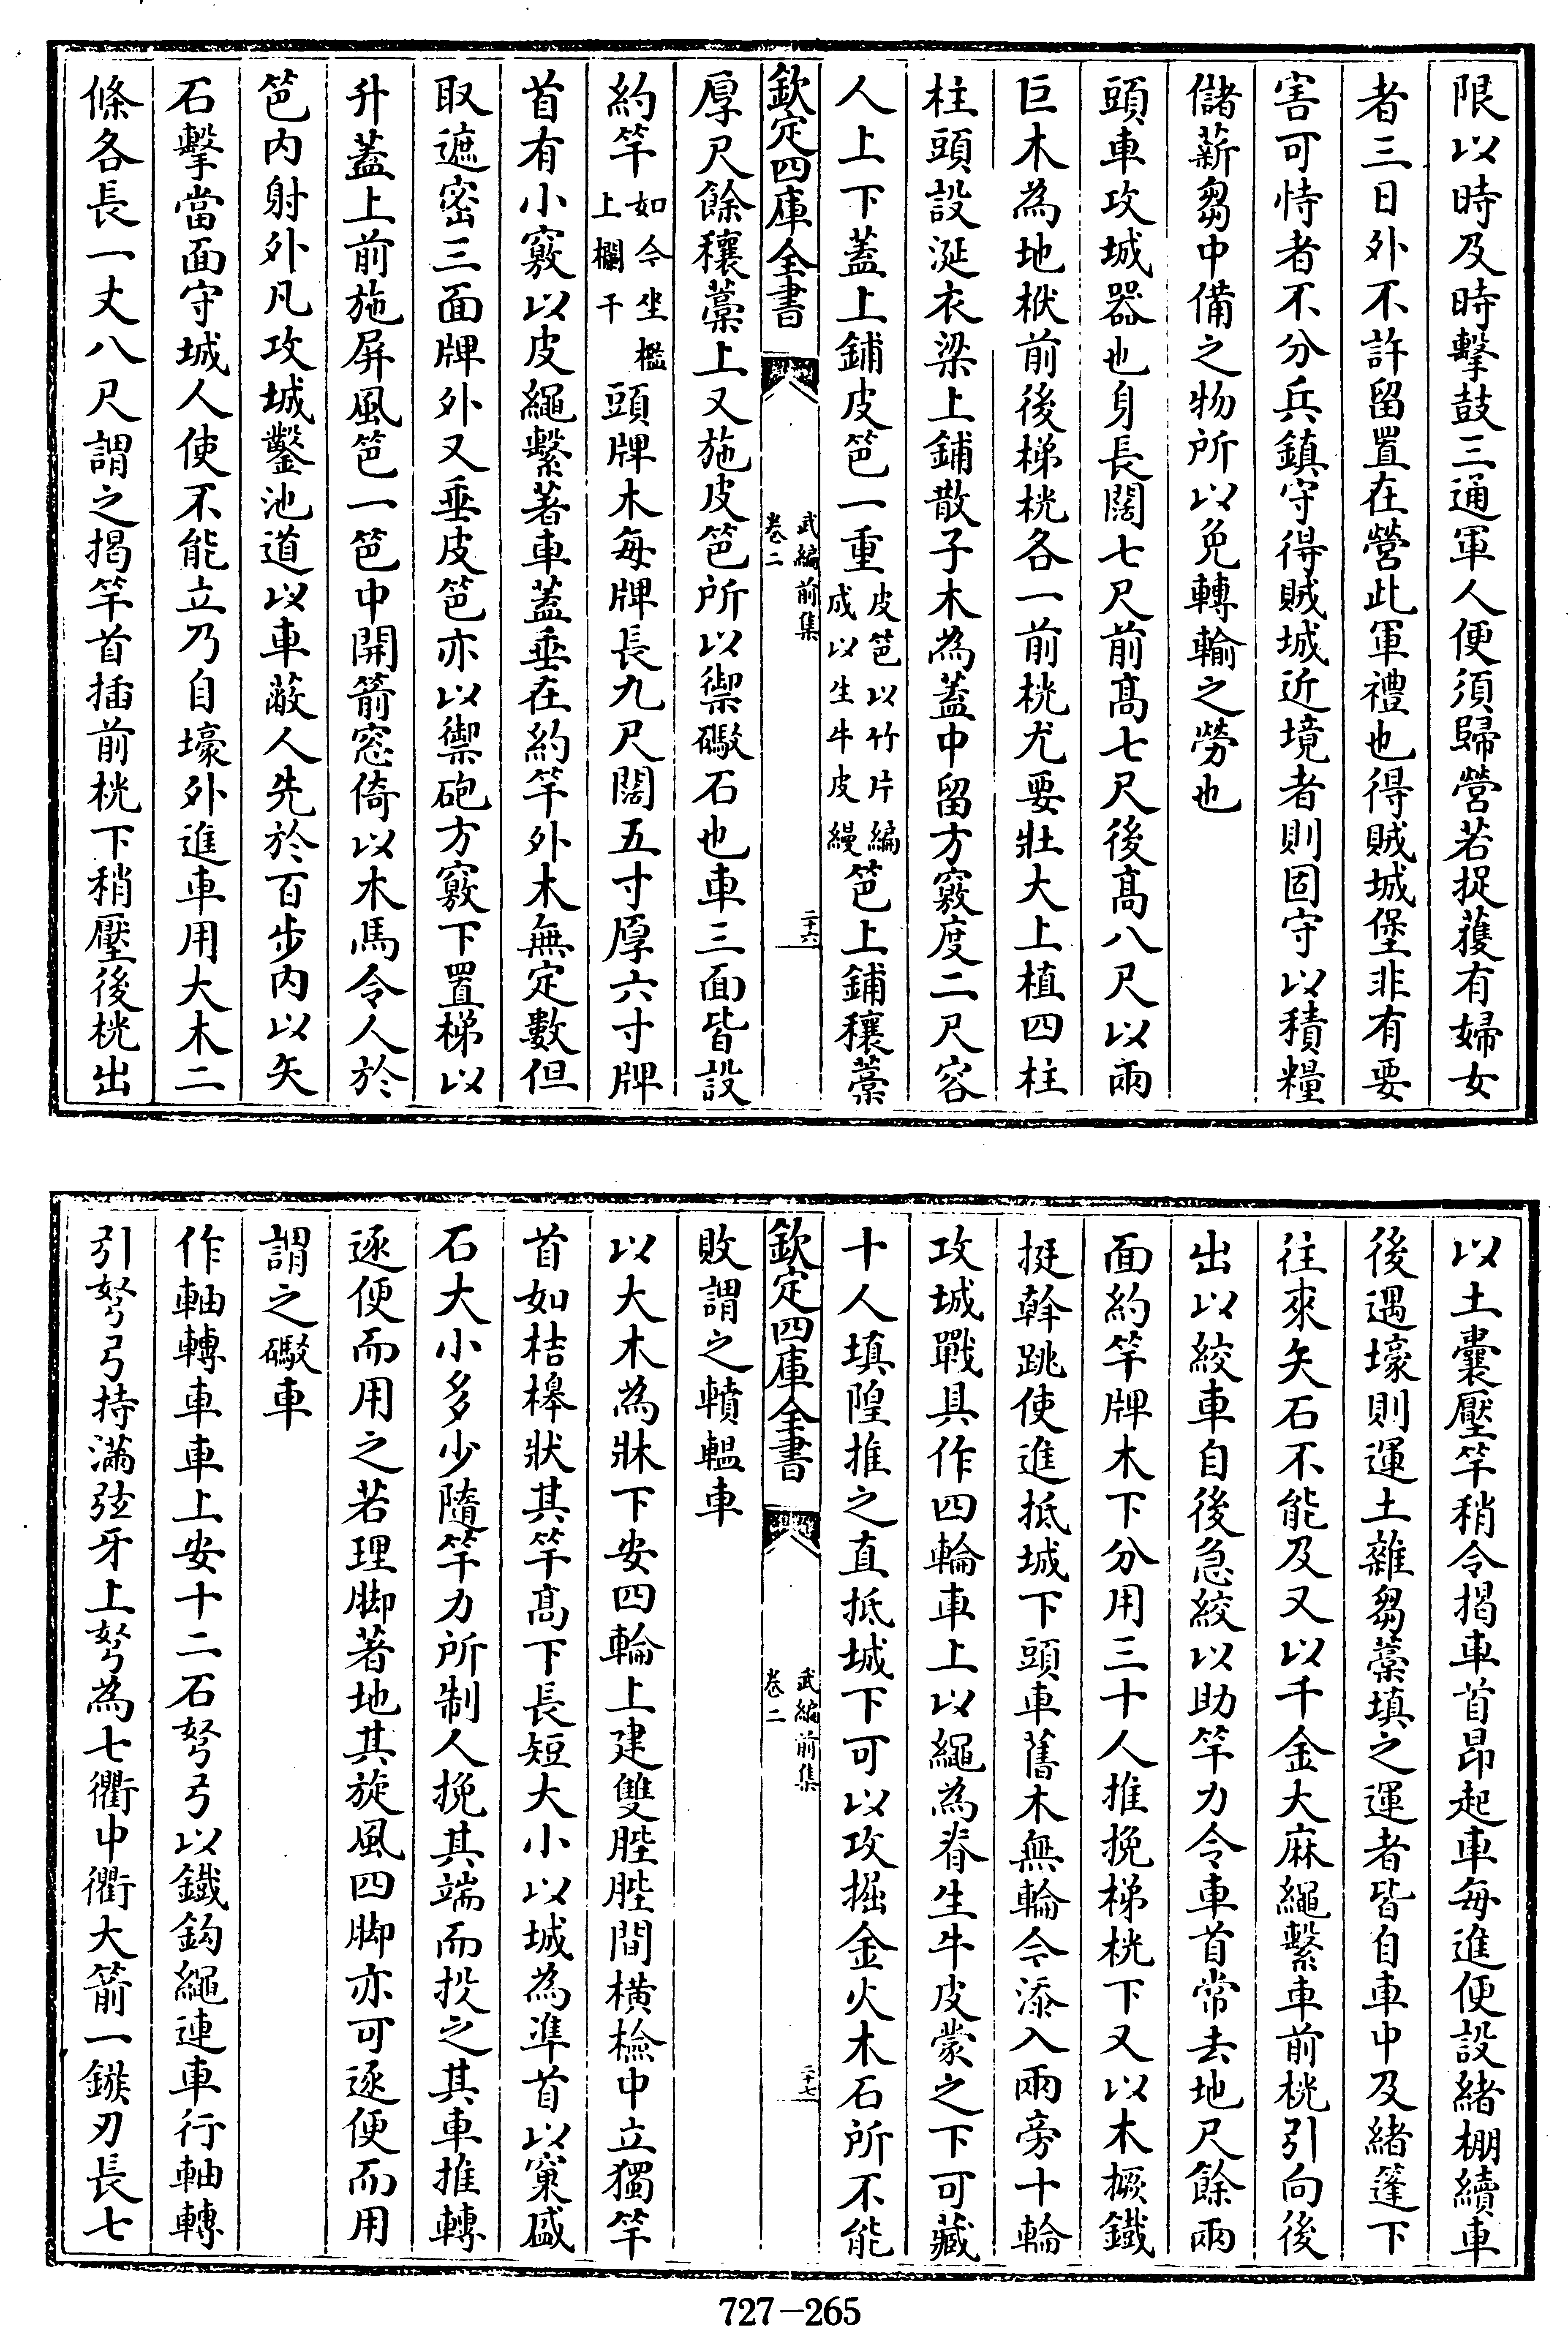 限以時及時擊鼓三通軍人便須歸營若捉獲有婦女
者三日外不許留置在營此軍禮也得賊城堡非有要
害可恃者不分兵鎮守得賊城近境者則固守以積糧
儲薪芻中備之物所以免轉輸之勞也
頭車攻城器也身長闊七尺前髙七尺後髙八尺以兩
巨木為地栿前後梯桄各一前桄尤要壯大上植四柱
柱頭設涎衣梁上鋪散子木為蓋中留方竅度二尺容
人上下蓋上鋪皮笆一重
皮笆以竹片編
成以生牛皮縵
笆上鋪穰藁
欽定四庫全書
武編前集
卷二
二十六
厚尺餘穰藁上又施皮笆所以禦礮石也車三面皆設
約竿
如今坐檻
上欄干
頭牌木每牌長九尺闊五寸厚六寸牌
首有小竅以皮繩繫著車蓋垂在約竿外木無定數但
取遮密三面牌外又垂皮笆亦以禦砲方竅下置梯以
升蓋上前施屏風笆一笆中開箭窓倚以木馬令人於
笆内射外凡攻城鑿池道以車蔽人先於百步内以矢
石擊當面守城人使不能立乃自壕外進車用大木二
條各長一丈八尺謂之揭竿首插前桄下稍壓後桄出
以土囊壓竿稍令揭車首昂起車每進便設緒棚續車
後遇壕則運土雜芻藁填之運者皆自車中及緒篷下
往來矢石不能及又以千金大麻繩繫車前桄引向後
出以絞車自後急絞以助竿力令車首常去地尺餘兩
面約竿牌木下分用三十人推挽梯桄下又以木撅鐵
挺幹跳使進抵城下頭車舊木無輪今添入兩旁十輪
攻城戰具作四輪車上以繩為脊生牛皮蒙之下可藏
十人填隍推之直抵城下可以攻掘金火木石所不能
欽定四庫全書
武編前集
卷二
二十七
敗謂之轒轀車
以大木為牀下安四輪上建雙陛陛間横檢中立獨竿
首如桔槹狀其竿髙下長短大小以城為準首以窠盛
石大小多少隨竿力所制人挽其端而投之其車推轉
逐便而用之若理脚著地其旋風四脚亦可逐便而用
謂之礮車
作軸轉車車上安十二石弩弓以鐵鈎繩連車行軸轉
引弩弓持滿弦牙上弩為七衢中衢大箭一鏃刃長七
727-265